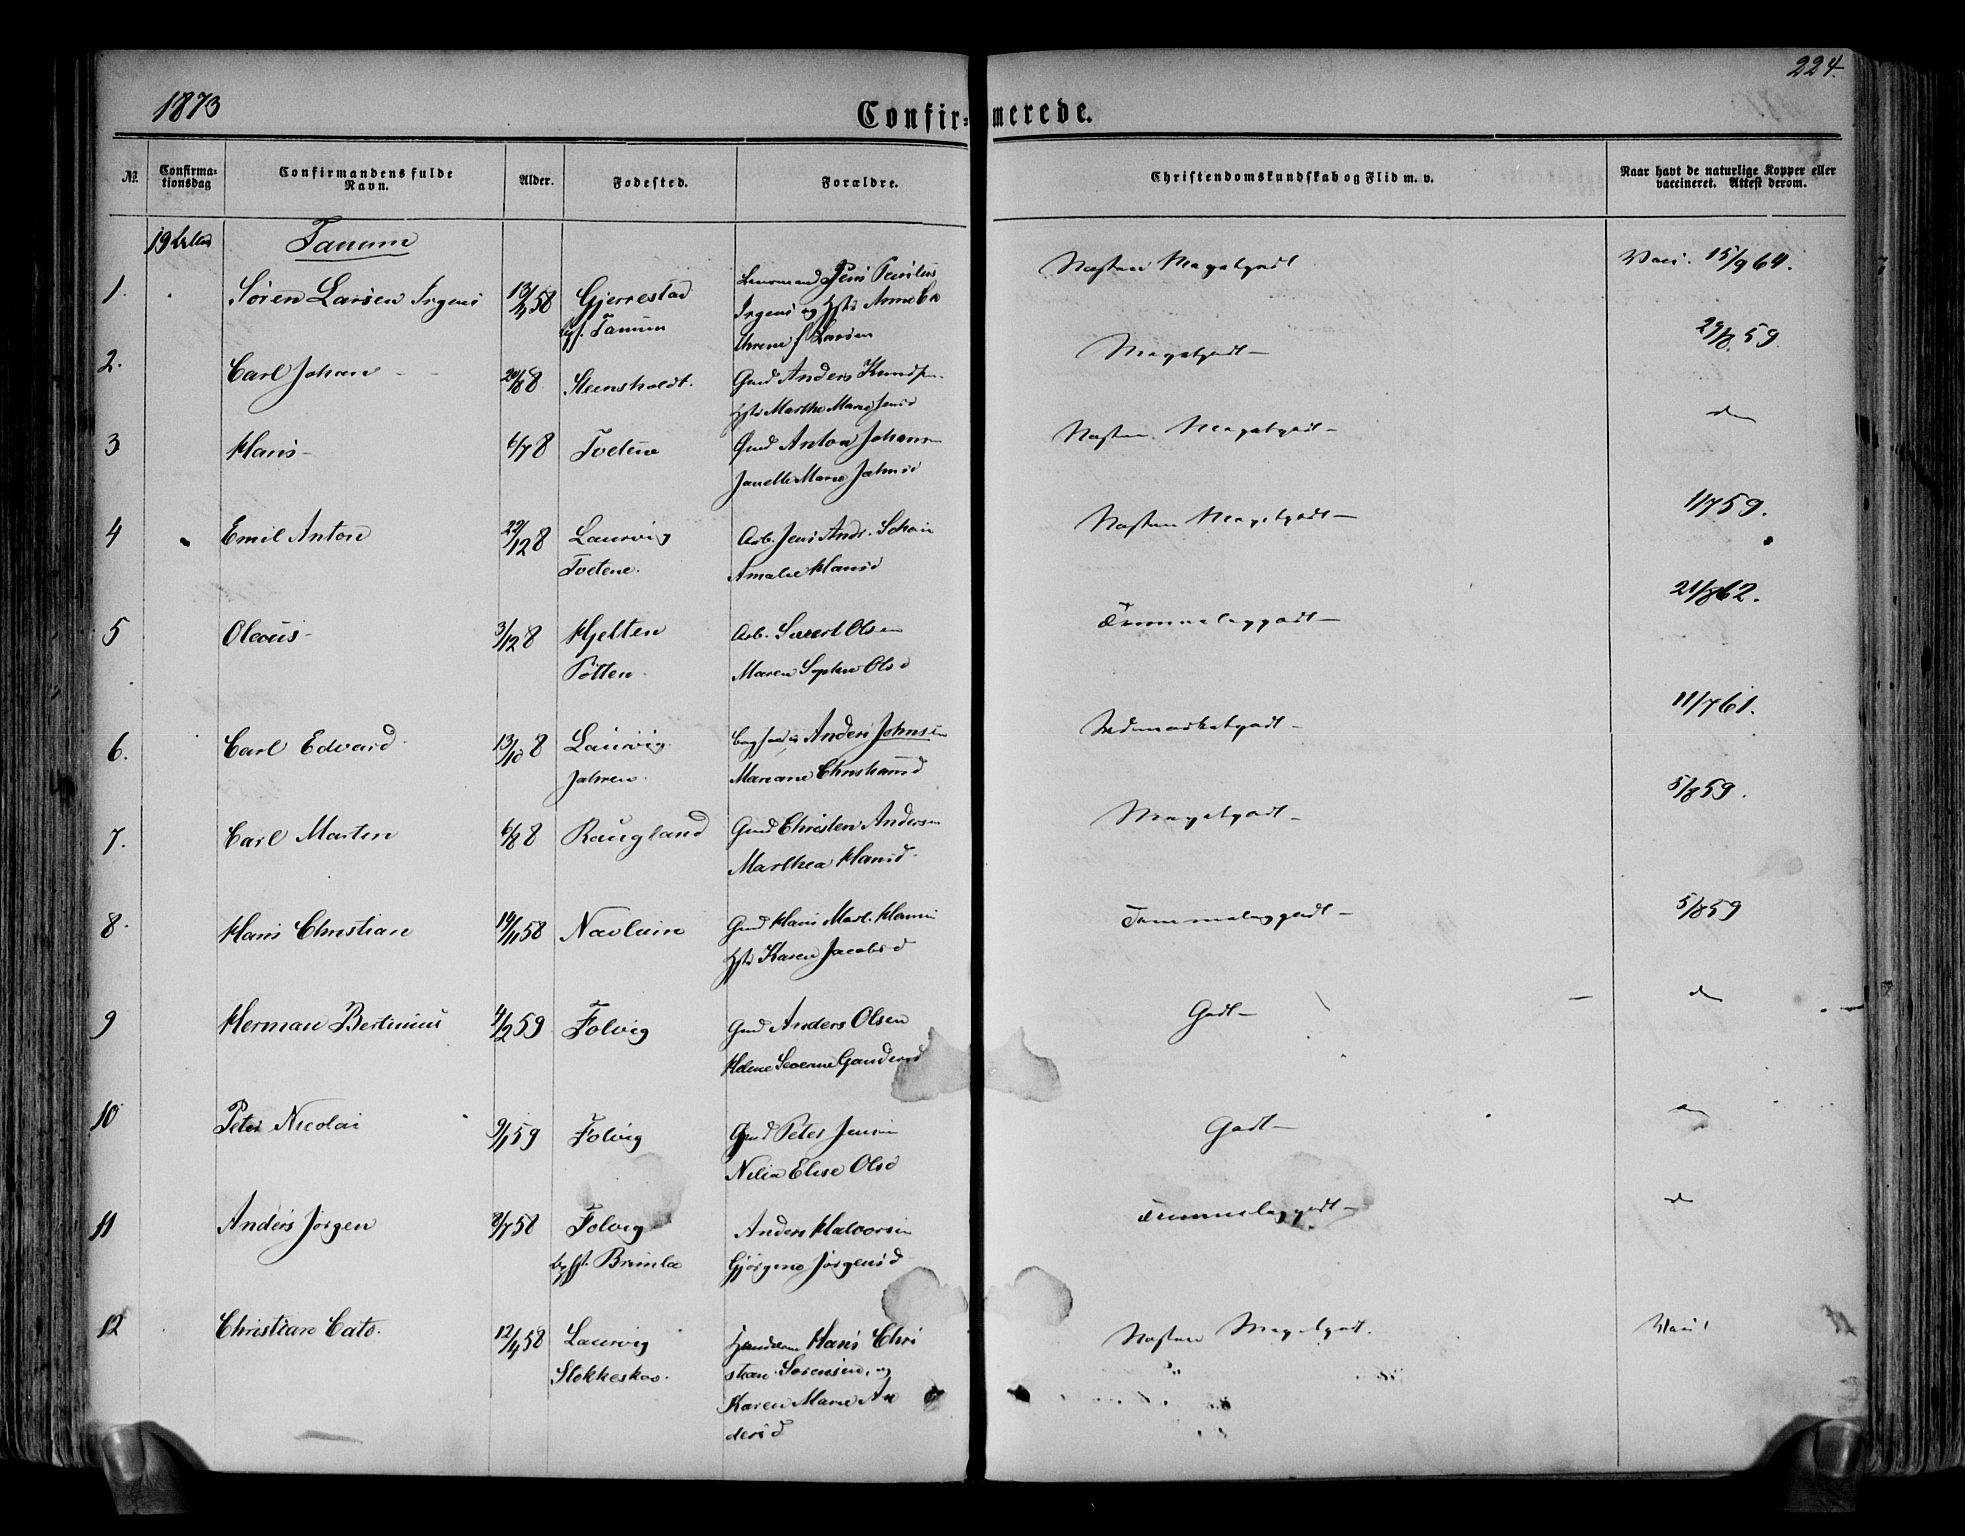 1873
224.
Confir= merede.
№
Confirma-
tionsdag
Confirmandens fulde
Navn.
Alder.
Fødested.
Forældre.
Christendomskundskab og Flid m. v.
Naar havt de naturlige Kopper eller
vaccineret. Attest derom.
Tanum
1.
Søren Larsen Irgens
58
Gjerrestad
Tanum
Irgens og
Næsten Megetgodt
Vacc. 15/9 64.
2.
Carl Johan
Steensholdt.
Gmd Anders Knudsen
Marthe Marie
Megetgodt
59.
3
Hans
6/7 8
Tvetene
Gmd Anton Johans
Marie
Næsten Megetgodt
do
4
Emil Anton
22/12 8
Laurvig
Tvetene.
Arb. Jens Andr.
Amalie Hansd
Næsten Megetgodt
11/7 59.
5
Oleaus
3/12 8
Hjelten
Pøtten.
Arb. Olsen
Maren Sophie Olsd
Temmeleggodt
21/8 62.
6.
Carl Edvard
13/10 8
Laurvig
Jahren.
Anders Johnsen
Mariane Christiansd
Udmærketgodt
11/7 61.
7.
Carl Martin
6/8 8
Raugland
Gmd Christen Andersen
Marthea Hansd.
Megetgodt
5/8 59.
8.
Hans Christian
14/11 58
Navluin
Gmd Hans Mart. Hansen
Karen Jacobsd
Temmeleggodt
5/8 59
9
Herman Bertinius
4/2 59
Folvig
Gmd Anders Olsen
Helene Severine
Godt
do
10
Peter Nicolai
9/1 59
Folvig
Gmd Peter Jensen
Elise Olsd
Godt
do
11
Anders Jørgen
8/7 58
Folvig
Brunla
Anders Halvorsen
Gjørgine Jørgensd
Temmeleggodt
do
12
Christian Cato.
12/4 58
Laurvig
Stokkeskov.
Hans Chri
stian Sørensen, og
Karen Marie An
dersd
Næsten Megetgodt.